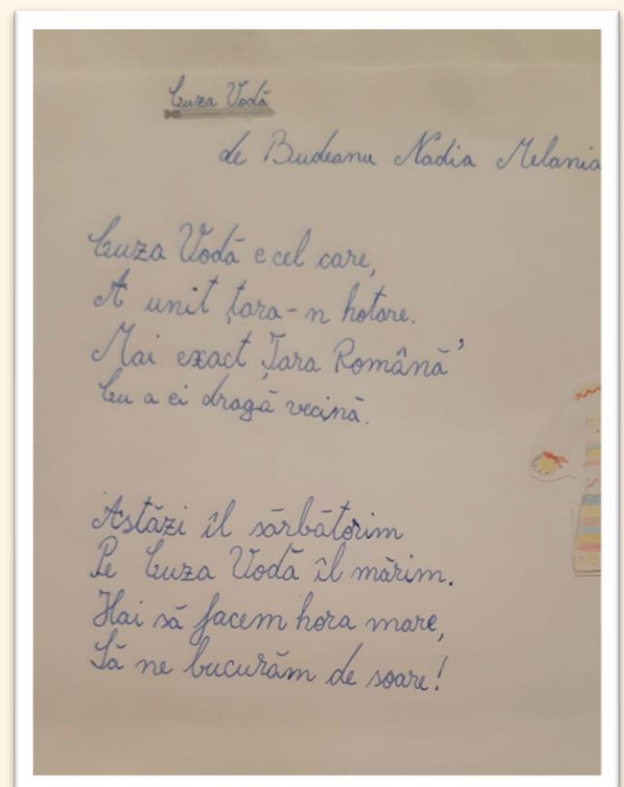 Cuza Vodă
de Budeanu Nadia Melania
Cuza Vodă e cel care,
A unit țara-n hotare.
Mai exact Țara Română'
Cu a ei dragă vecină.
Astăzi îl sărbătorim
Pe Cuza Vodă îl mărim.
Hai să facem hora mare,
Să ne bucurăm de soare!